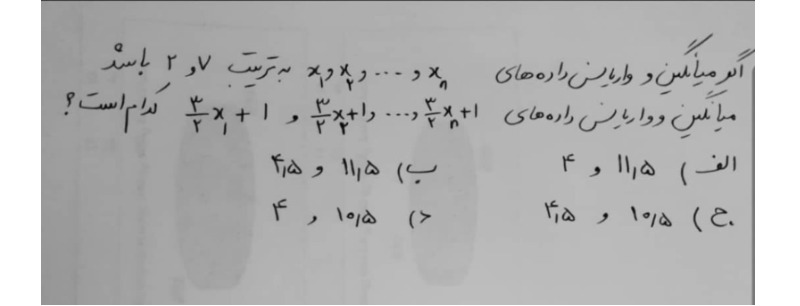 اگر میانگین و واریانس داده‌های x₁ و x₂ و ... و xₙ به ترتیب ۷ و ۲ باشد
میانگین و واریانس داده‌های ۳/۲x₁+۱ و ۳/۲x₂+۱ و ... و ۳/۲xₙ+۱ کدام است؟
الف) ۱۱٫۵ و ۴ ب) ۱۱٫۵ و ۴٫۵
ج) ۱۰٫۵ و ۴٫۵ د) ۱۰٫۵ و ۴